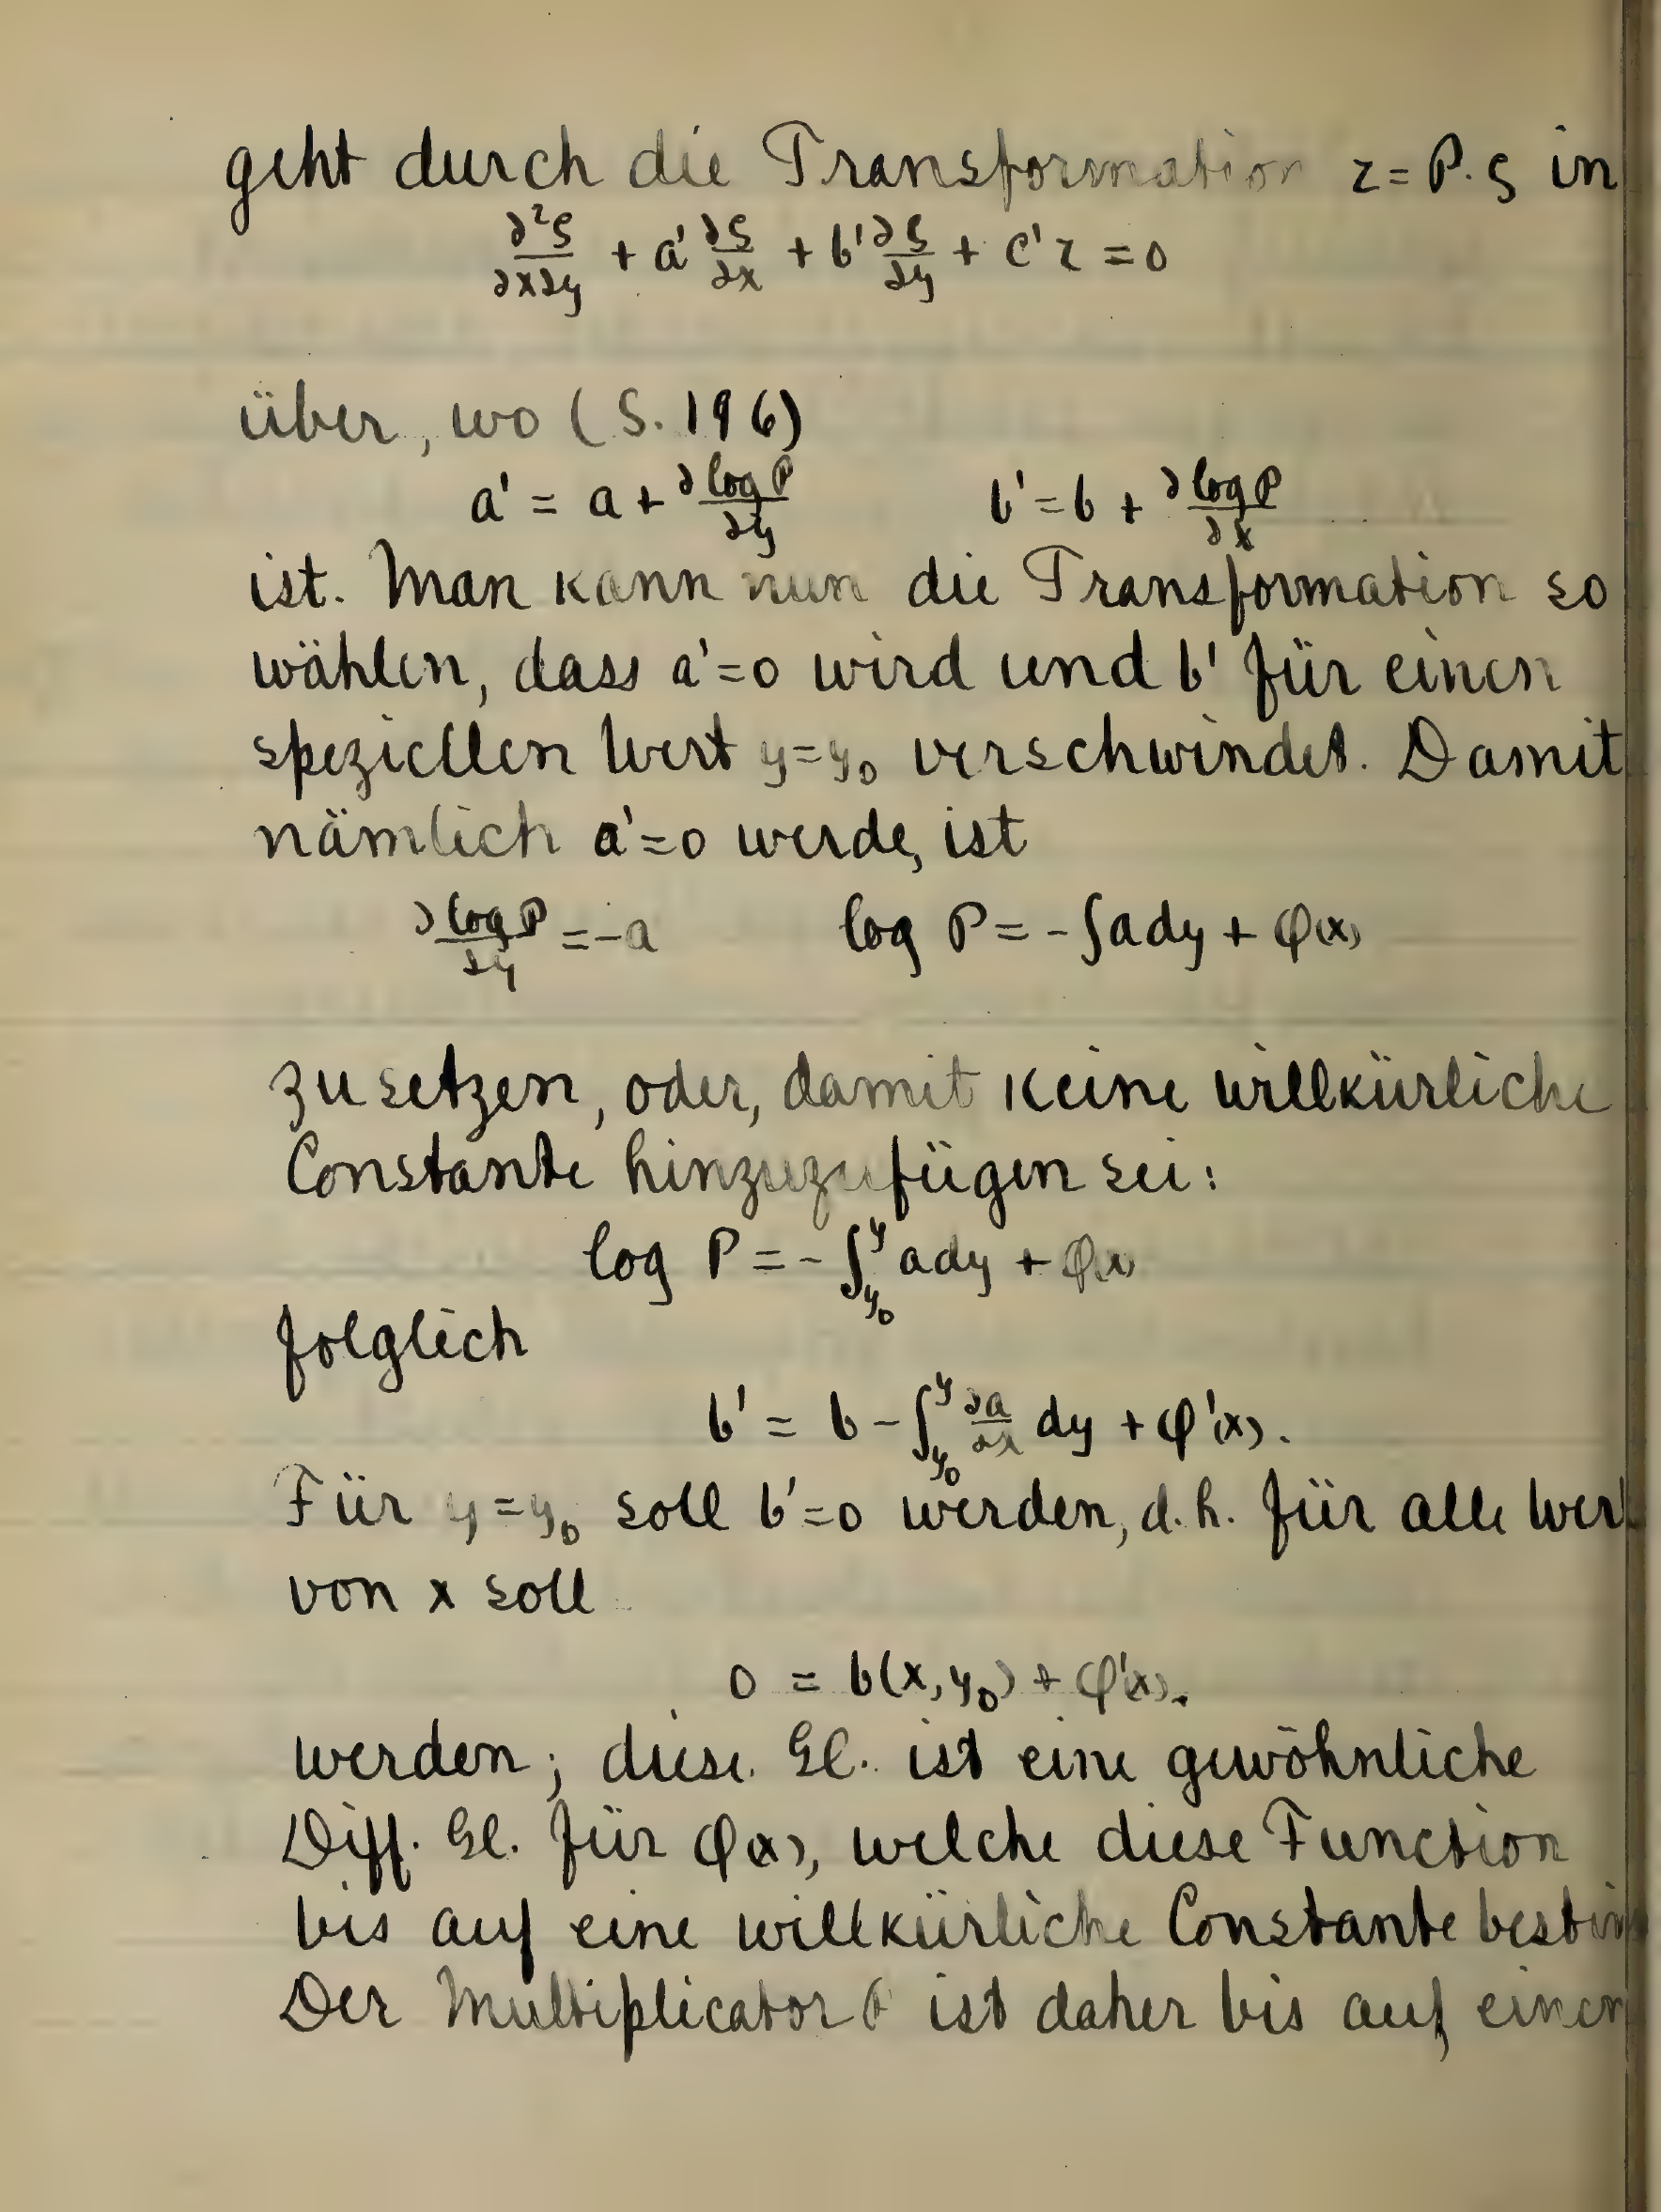 geht durch die Transformation z = P·ζ in
∂²ζ/∂x∂y + a' ∂ζ/∂x + b' ∂ζ/∂y + c'z = 0
über, wo (S. 196)
a' = a + ∂ log P/∂y b' = b + ∂ log P/∂x
ist. Man kann nun die Transformation so
wählen, dass a'=0 wird und b' für einen
speziellen Wert y=y₀ verschwindet. Damit
nämlich a'=0 werde, ist
∂ log P/∂y = -a log P = -∫a dy + φ(x)
zu setzen, oder, damit keine willkürliche
Constante hinzuzufügen sei:
log P = -∫_{y₀}^{y} a dy + φ(x)
folglich
b' = b - ∫_{y₀}^{y} ∂a/∂x dy + φ'(x).
Für y=y₀ soll b'=0 werden, d.h. für alle Wer
von x soll
0 = b(x, y₀) + φ'(x).
werden; diese Gl. ist eine gewöhnliche
Diff. Gl. für φ(x), welche diese Function
bis auf eine willkürliche Constante bestim
Der Multiplicator P ist daher bis auf einen